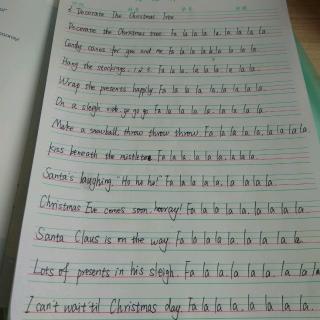 Decorate The Christmas Tree
Decorate the Christmas tree. Fa la la la la. la la la la.
Candy canes for you and me. Fa la la la la la la la la.
Hang the stockings. 1. 2. 3. Fa la la. la la la la la la.
Wrap the presents happily. Fa la la la la. la la la la.
On a sleigh ride. go go go. Fa la la la la. la la la la.
Make a snowball. throw throw throw. Fa la la la la. la la la la.
Kiss beneath the mistletoe. Fa la la la la. la la la la.
Santa's laughing, "Ho ho ho!" Fa la la la la. la la la la.
Christmas Eve comes soon. hooray! Fa la la la la. la la la la.
Santa Claus is on the way. Fa la la la la. la la la la
Lots of presents in his sleigh. Fa la la la la. la la la la
I can't wait 'til Christmas day. Fa la la la la. la la la la.